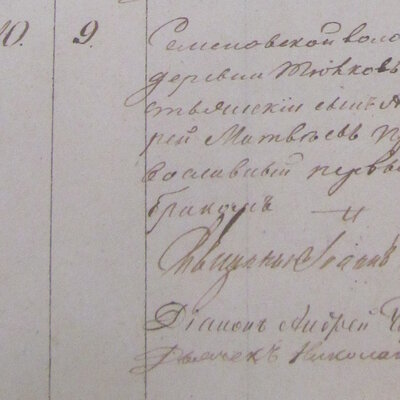 10. 9. Семеновской воло
деревни Тюнков
стьянскій сынъ А
рей Матвѣевъ пр
вославный первы
бракомъ
Священникъ Іоаннъ
Діаконъ Андрей
Дьячекъ Николай